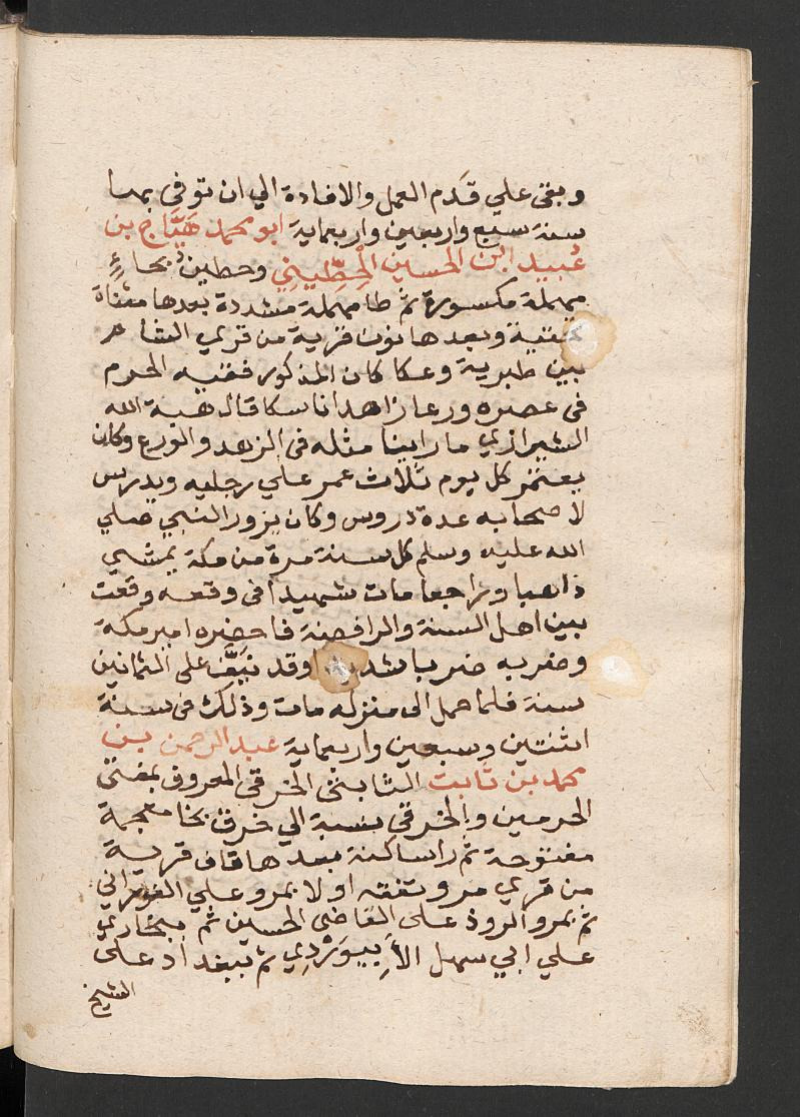 وبقى علي قَدم العمل والافادة الي ان توفى بها
سنة سبع واربعين واربعماية ابو محمد هَيَّاج بن
عُبيد ابن الحسين الحِطِّيني وحطين بحاءٍ
مهملة مكسورة ثم طا مهملة مشددة بعدها مثناة
تحتية وبعدها نون قرية من قري الشام
بين طبرية وعكا كان المذكور فقيه الحرم
فى عصره ورعا زاهدا ناسكا قال هبة الله
الشيرازي ما راينا مثله فى الزهد والورع وكان
يعتمر كل يوم ثلاث عمر علي رجليه ويدرس
لاصحابه عدة دروس وكان يزور النبي صلي
الله عليه وسلم كل سنة مرة من مكة يمشي
ذاهبا وراجعا مات شهيدا فى وقعه وقعت
بين اهل السنة والرافضة فاحضره امير مكة
وضربه ضربا شديدا وقد نيَّف على الثمانين
سنة فلما حمل الى منزله مات وذلك فى سنة
اثنتين وسبعين واربعماية عبد الرحمن بن
محمد بن ثابت الثابتى الخرقى المعروف بمفتى
الحرمين والخرقي نسبة الي خرق بخا معجمة
مفتوحة ثم را ساكنة بعدها قاف قرية
من قري مرو تفقه اولا بمرو علي الفوراني
ثم بمرو الروذ على القاضى الحسين ثم ببخاري
علي ابي سهل الأَبِيوَرْدِي ثم ببغداد على
الشيخ